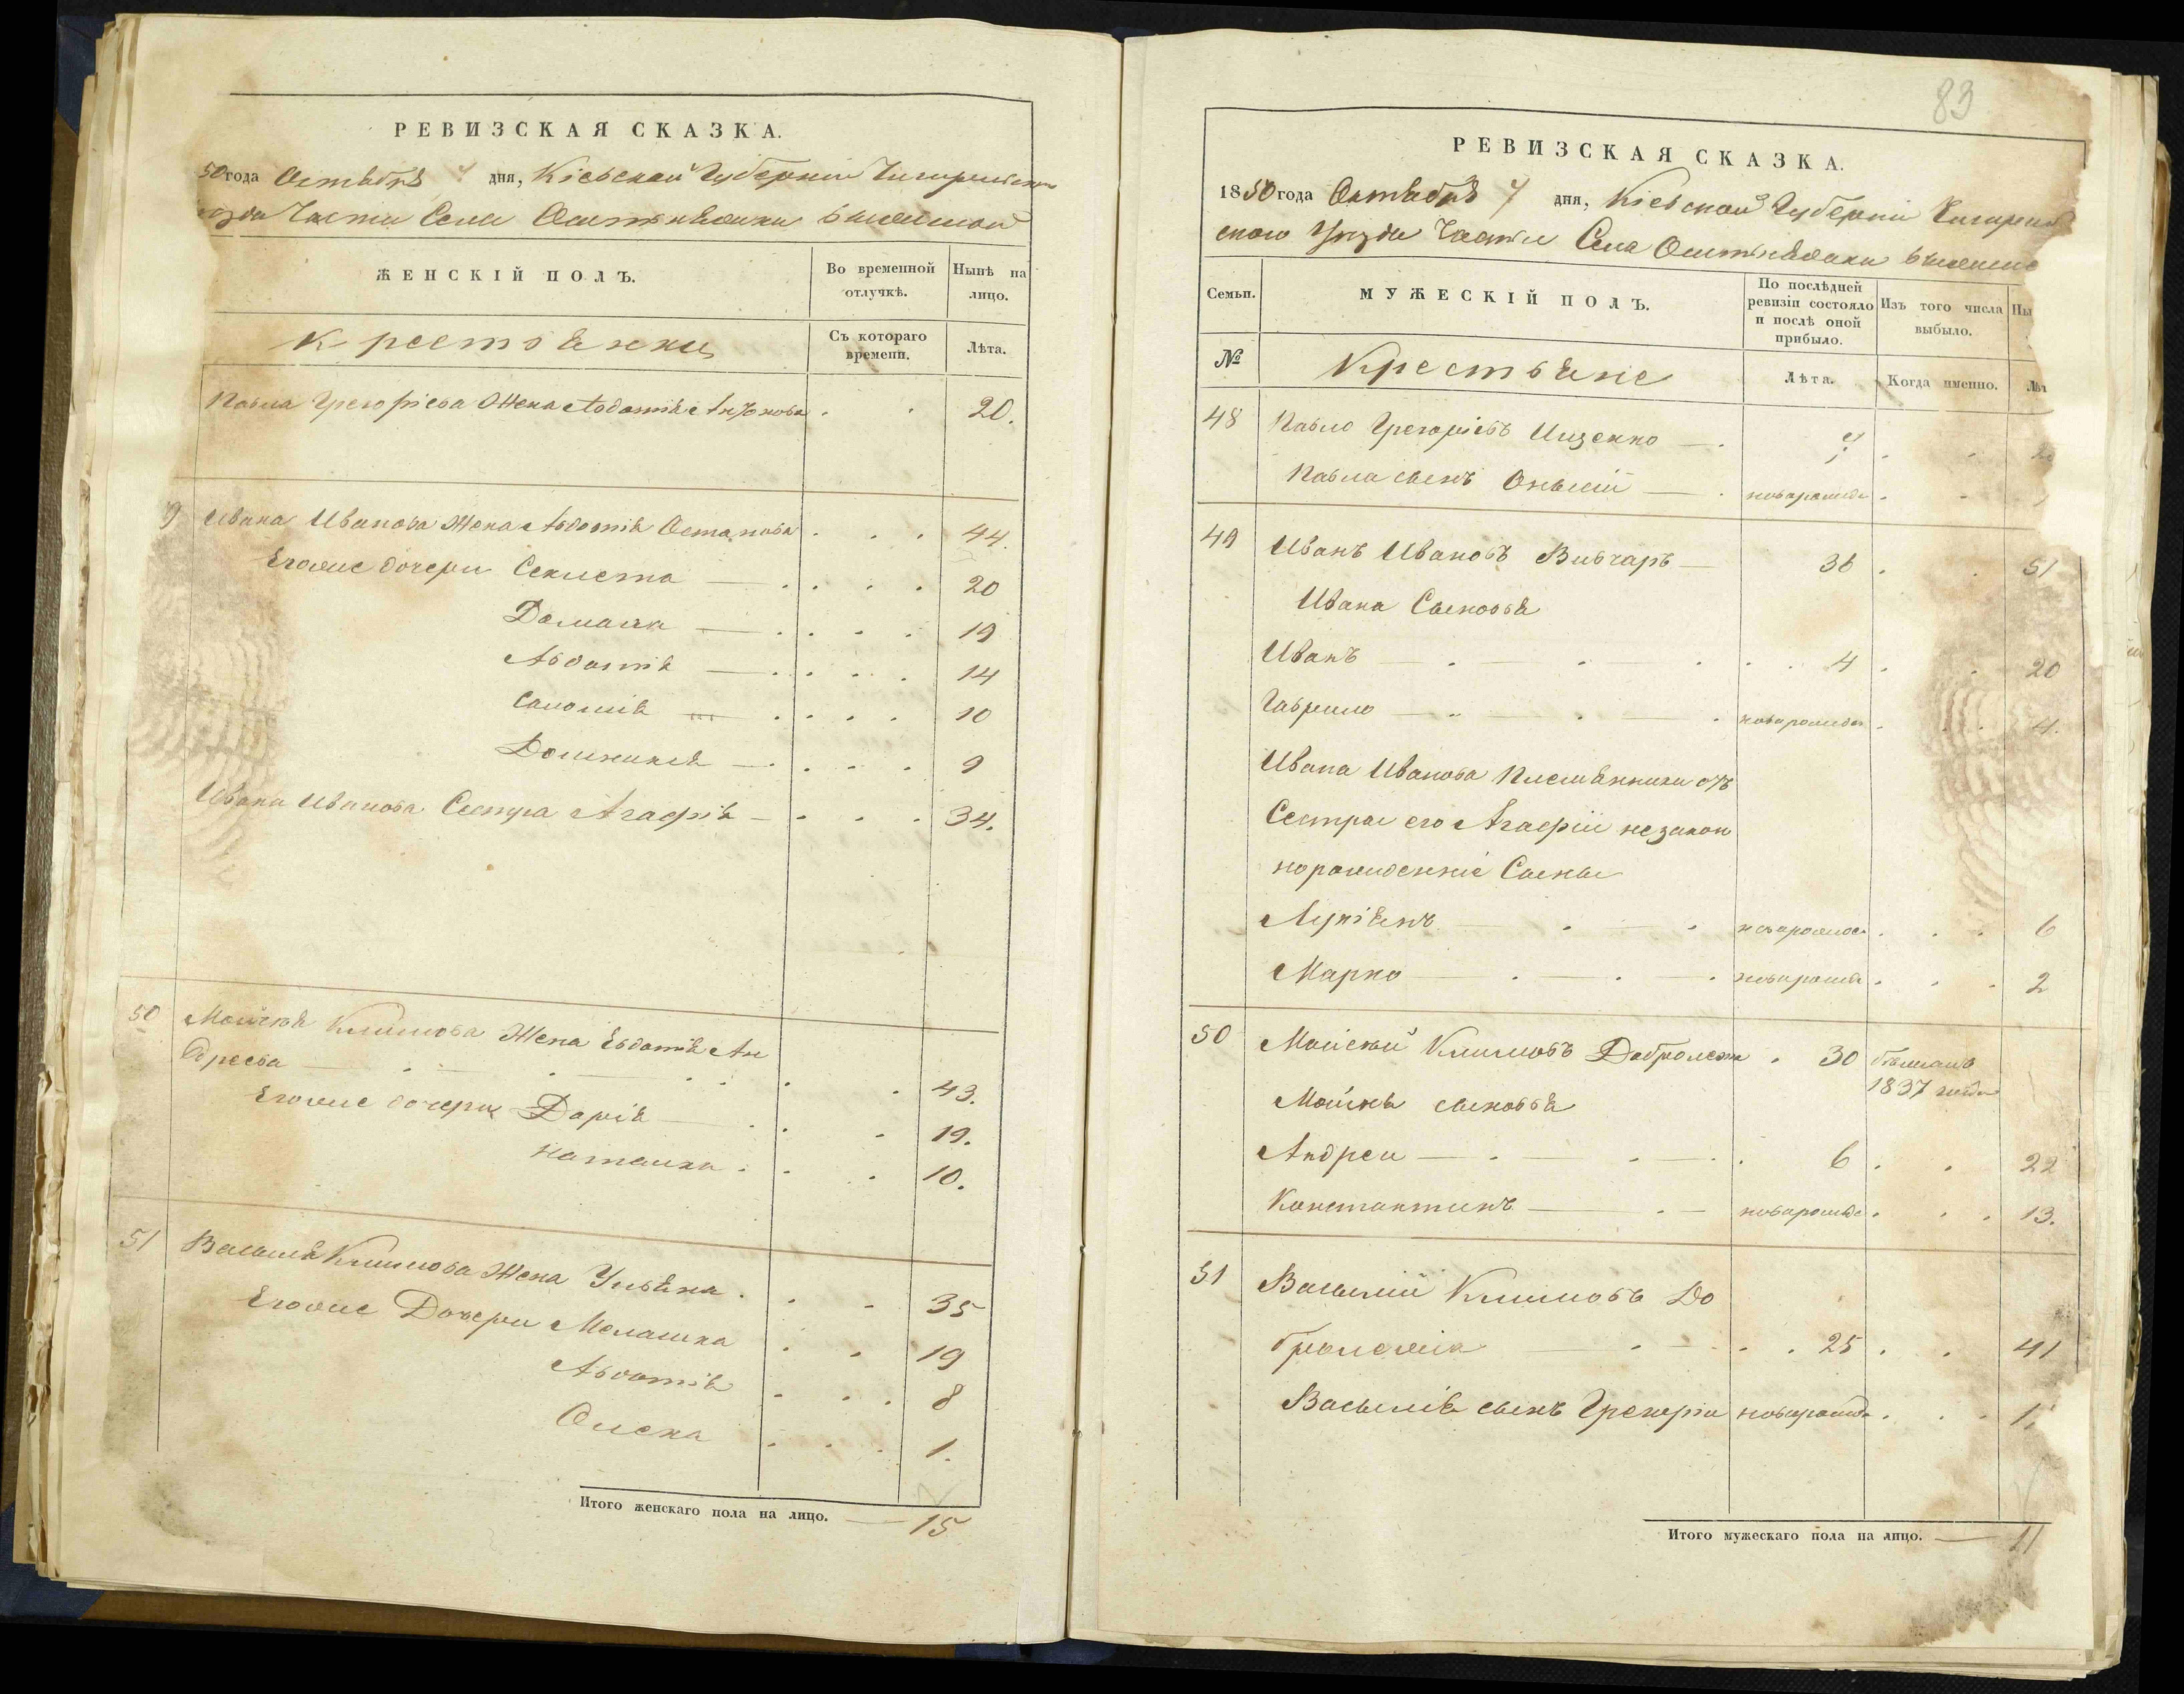 РЕВИЗСКАЯ СКАЗКА.
50 года Октября 4 дня, Кіевской Губерніи Чигиринск
Части Села
ЖЕНСКІЙ ПОЛЪ.
Во временной отлучкѣ.
Нынѣ на лицо.
Крестьянки
Съ котораго времени.
Лѣта.
Павла Григорієва Жена Авдотія 20.
9 Ивана Иванова Жена Авдотія Остапова 44.
Єгоже дочери Секлета 20
Домаха 19
Авдотія 14
Саломія 10
Домникія 9
Ивана Иванова Сестра Агафія 34.
50 Мойсѣя Климова Жена Євдотія Ан
дреєва 43.
Єгоже дочери Дарія 19.
Наталка 10.
51 Василія Климова Жена Ульяна 35
Єгоже Дочери Мелашка 19
Авдотія 8
Олена 1.
Итого женскаго пола на лицо. 15
83
РЕВИЗСКАЯ СКАЗКА.
1850 года Октября 4 дня, Кіевской Губерніи Чигирин
ского Уѣзда Части Села
Семьи.
МУЖЕСКІЙ ПОЛЪ.
По послѣдней ревизіи состояло и послѣ оной прибыло.
Изъ того числа выбыло.
Ны
№
Крестьяне
Лѣта.
Когда именно.
Лѣт
48 Павло Григоріевъ Ищенко
Павла сынъ новорожде
49 Иванъ Ивановъ Вивчаръ 36 51
Ивана Сыновья
Иванъ 4 20
Гаврило новорожде 4.
Ивана Иванова Племянники отъ
Сестры его Агафіи незакон
норожденніе Сыны
Лукіянъ новорожде 6
Марко новорожде 2
50 Мойсей Климовъ 30 бѣжалъ
1837 года
Мойсѣя сыновья
Андреи 6 22
Константинъ новорожде 13.
51 Василій Климовъ До
25 41
Василія сынъ Григорій новорожде 1.
Итого мужескаго пола на лицо. 11